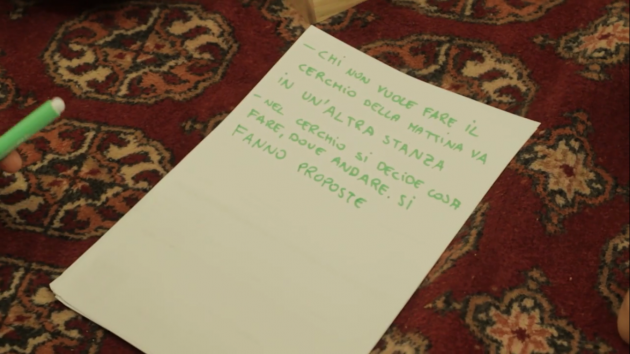 - CHI NON VUOLE FARE IL
CERCHIO DELLA MATTINA VA
IN UN'ALTRA STANZA
- NEL CERCHIO SI DECIDE COSA
FARE, DOVE ANDARE. SI
FANNO PROPOSTE